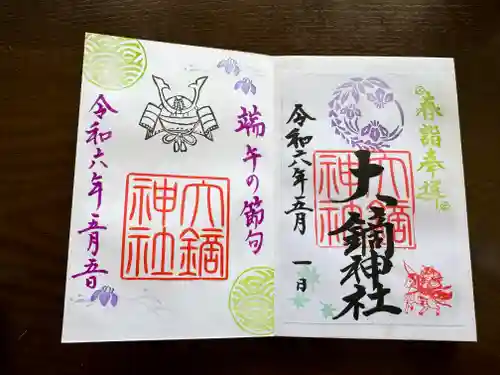 端午の節句
大鏑
神社
令和六年五月五日
奉遥
大鏑神社
大鏑
神社
令和六年五月一日